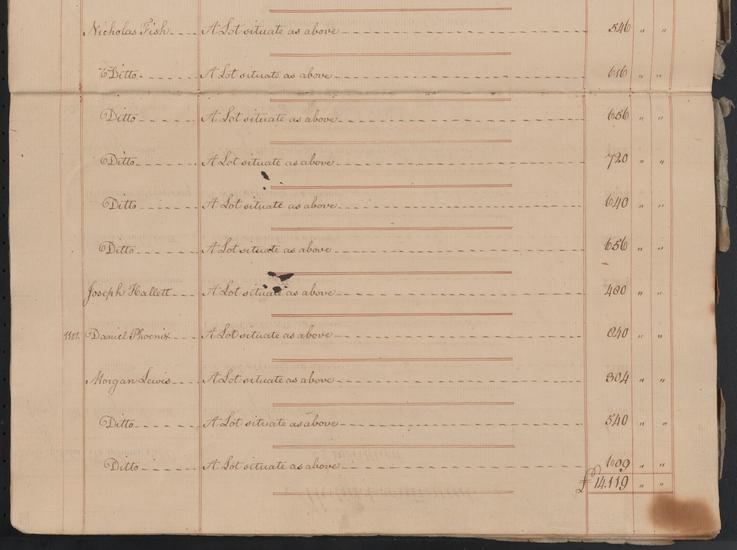 Nicholas Fish A Lot situate as above 546 " "
Ditto A Lot situate as above 616 " "
Ditto A Lot situate as above 656 " "
Ditto A Lot situate as above 720 " "
Ditto A Lot situate as above 640 " "
Ditto A Lot situate as above 656 " "
Joseph Hallett A Lot situate as above 480 " "
Daniel Phoenix A Lot situate as above 840 " "
Morgan Lewis A Lot situate as above 304 " "
Ditto A Lot situate as above 540 " "
Ditto A Lot situate as above 1609 " "
£ 14.119 " "